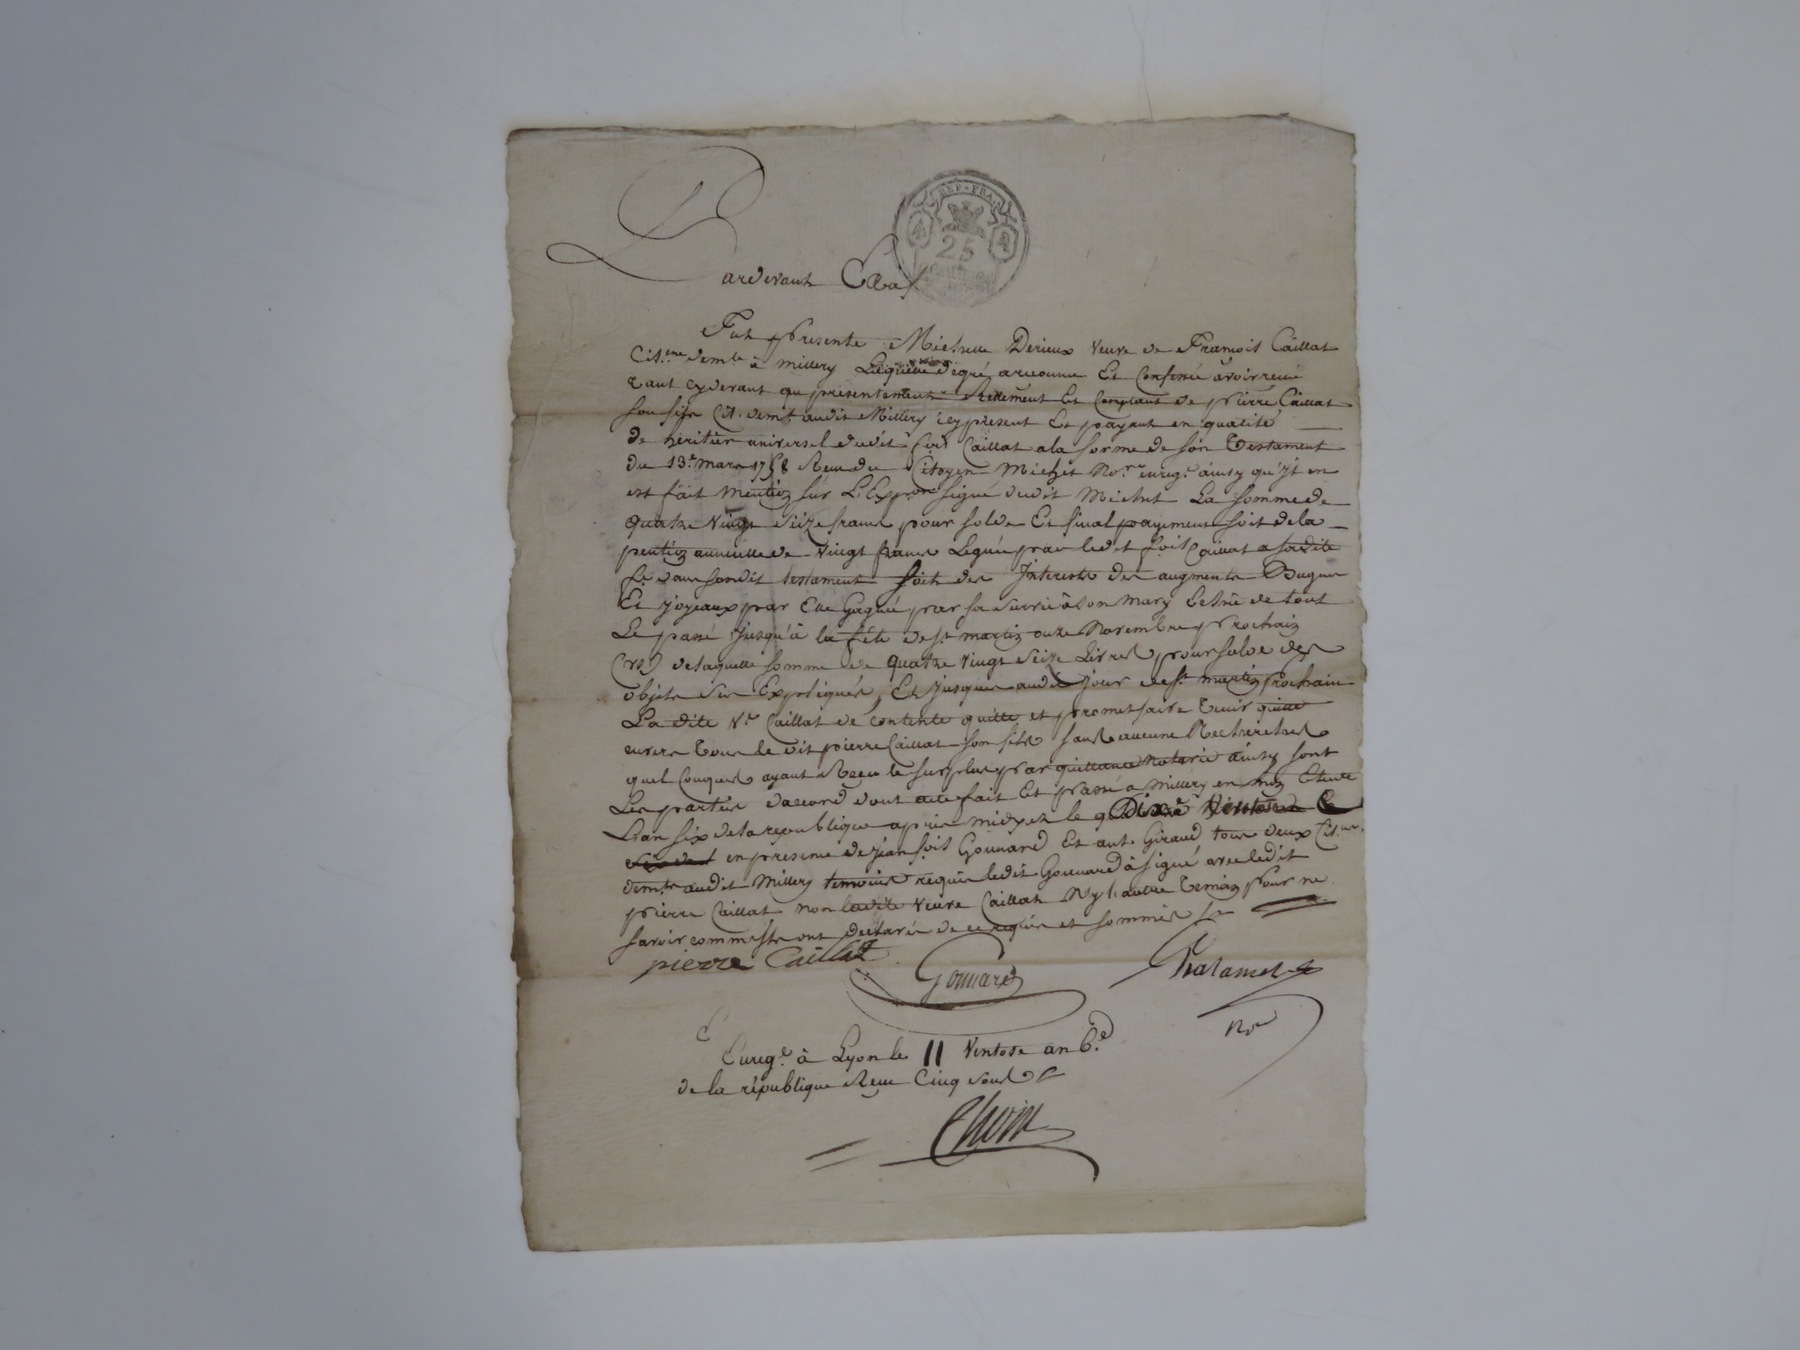 REP. FRA.
25
Pardevant &a
Fut presente Michelle Derieux veuve de François Caillat
Cit.enne dem.te à Millery Laquelle degré a reconnu Et Confessé avoir reçu
tant cy devant que présentement reellement Et Comptant de pierre Caillat
son fils Cit. dem.t audit Millery icy present Et payant en qualité
de heritier universel dudit f.ois Caillat a la forme de son Testament
du 13.e mars Reçu du Citoyen Michet No.re enreg.é ainsy qu'il en
est fait mention sur L'Exp.on signé dudit Michet La somme de
quatre vingt seize francs pour solde Et final payement soit de la
pention annuelle de vingt francs Leguée par ledit f.ois Caillat a sadite
f.e dans sondit testament soit des Interets des augments Bagues
Et joyeaux par Elle Gagné par sa survie à son mary Echue de tout
Le passé jusqu'à la fête de s.t martin onze Novembre prochain
(vs) de laquelle somme de quatre vingt seize Livres pour solde des
objets sus Expliqués, Et jusques audit jour de s.t martin prochain
La dite v.e Caillat de contente quitte et promet faire tenir quitte
envers tous le dit pierre Caillat son fils sans aucune Recherches
quel Conques ayant Reçu le surplus par quittance notariée ainsy sont
Les parties d'accord dont acte fait Et passé à Millery en mon Etude
L'an six de la republique après midy et le
en presence de jean f.ois Gounard Et ant. Giraud tous deux Cit.ens
dem.ts audit Millery temoins requis ledit Gounard à signé avec ledit
pierre Caillat non ladite veuve Caillat Ny l'autre temoin pour ne
savoir comme ils ont declaré de ce requis et sommés
pierre Caillat
Gounard
Thalamel
No.re
Enreg.é à Lyon le 11 Ventose an 6.e
de la république Reçu Cinq sous